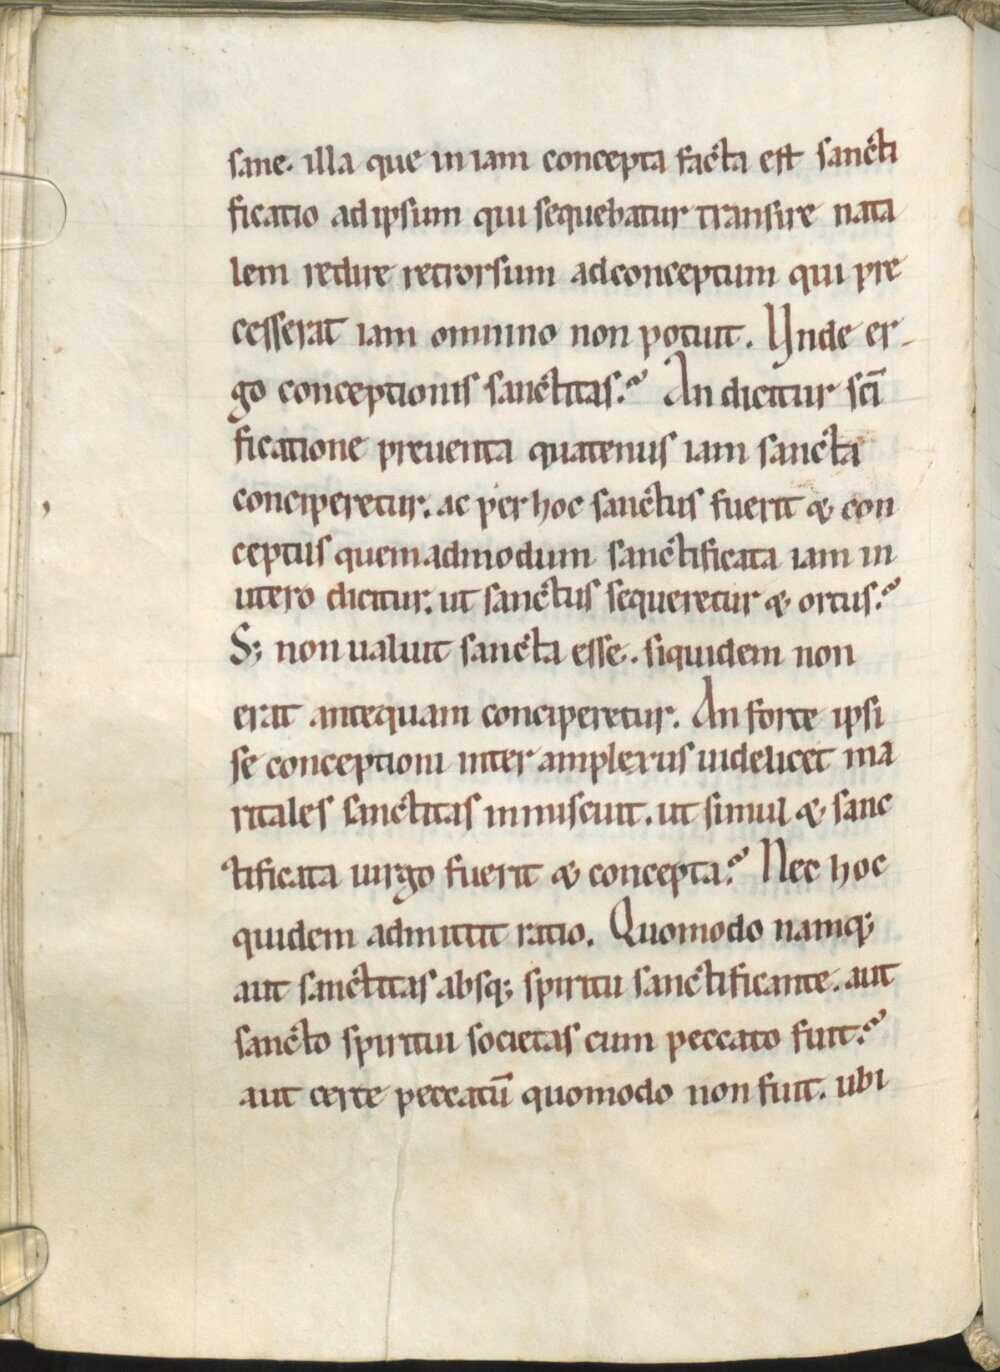 sane. illa que in iam concepta facta est sancti
ficatio ad ipsum qui sequebatur transire nata
lem redire retrorsum ad conceptum qui pre
cesserat iam omnino non potuit. Unde er-
go conceptionis sanctitas? An dicitur sc̄i
ficatione preuenta quatenus iam sancta
conciperetur. ac per hoc sanctus fuerit & con
ceptus quemadmodum sanctificata iam in
utero dicitur. ut sanctus sequeretur & ortus?
S; non ualuit sancta esse. siquidem non
erat antequam conciperetur. An forte ipsi
se conceptioni inter amplexus uidelicet ma
ritales sanctitas inmiscuit. ut simul & sanc
tificata uirgo fuerit & concepta? Nec hoc
quidem admittit ratio. Quomodo namq;
aut sanctitas absq; spiritu sanctificante. aut
sancto spiritui societas cum peccato fuit?
aut certe peccatū quomodo non fuit. ubi